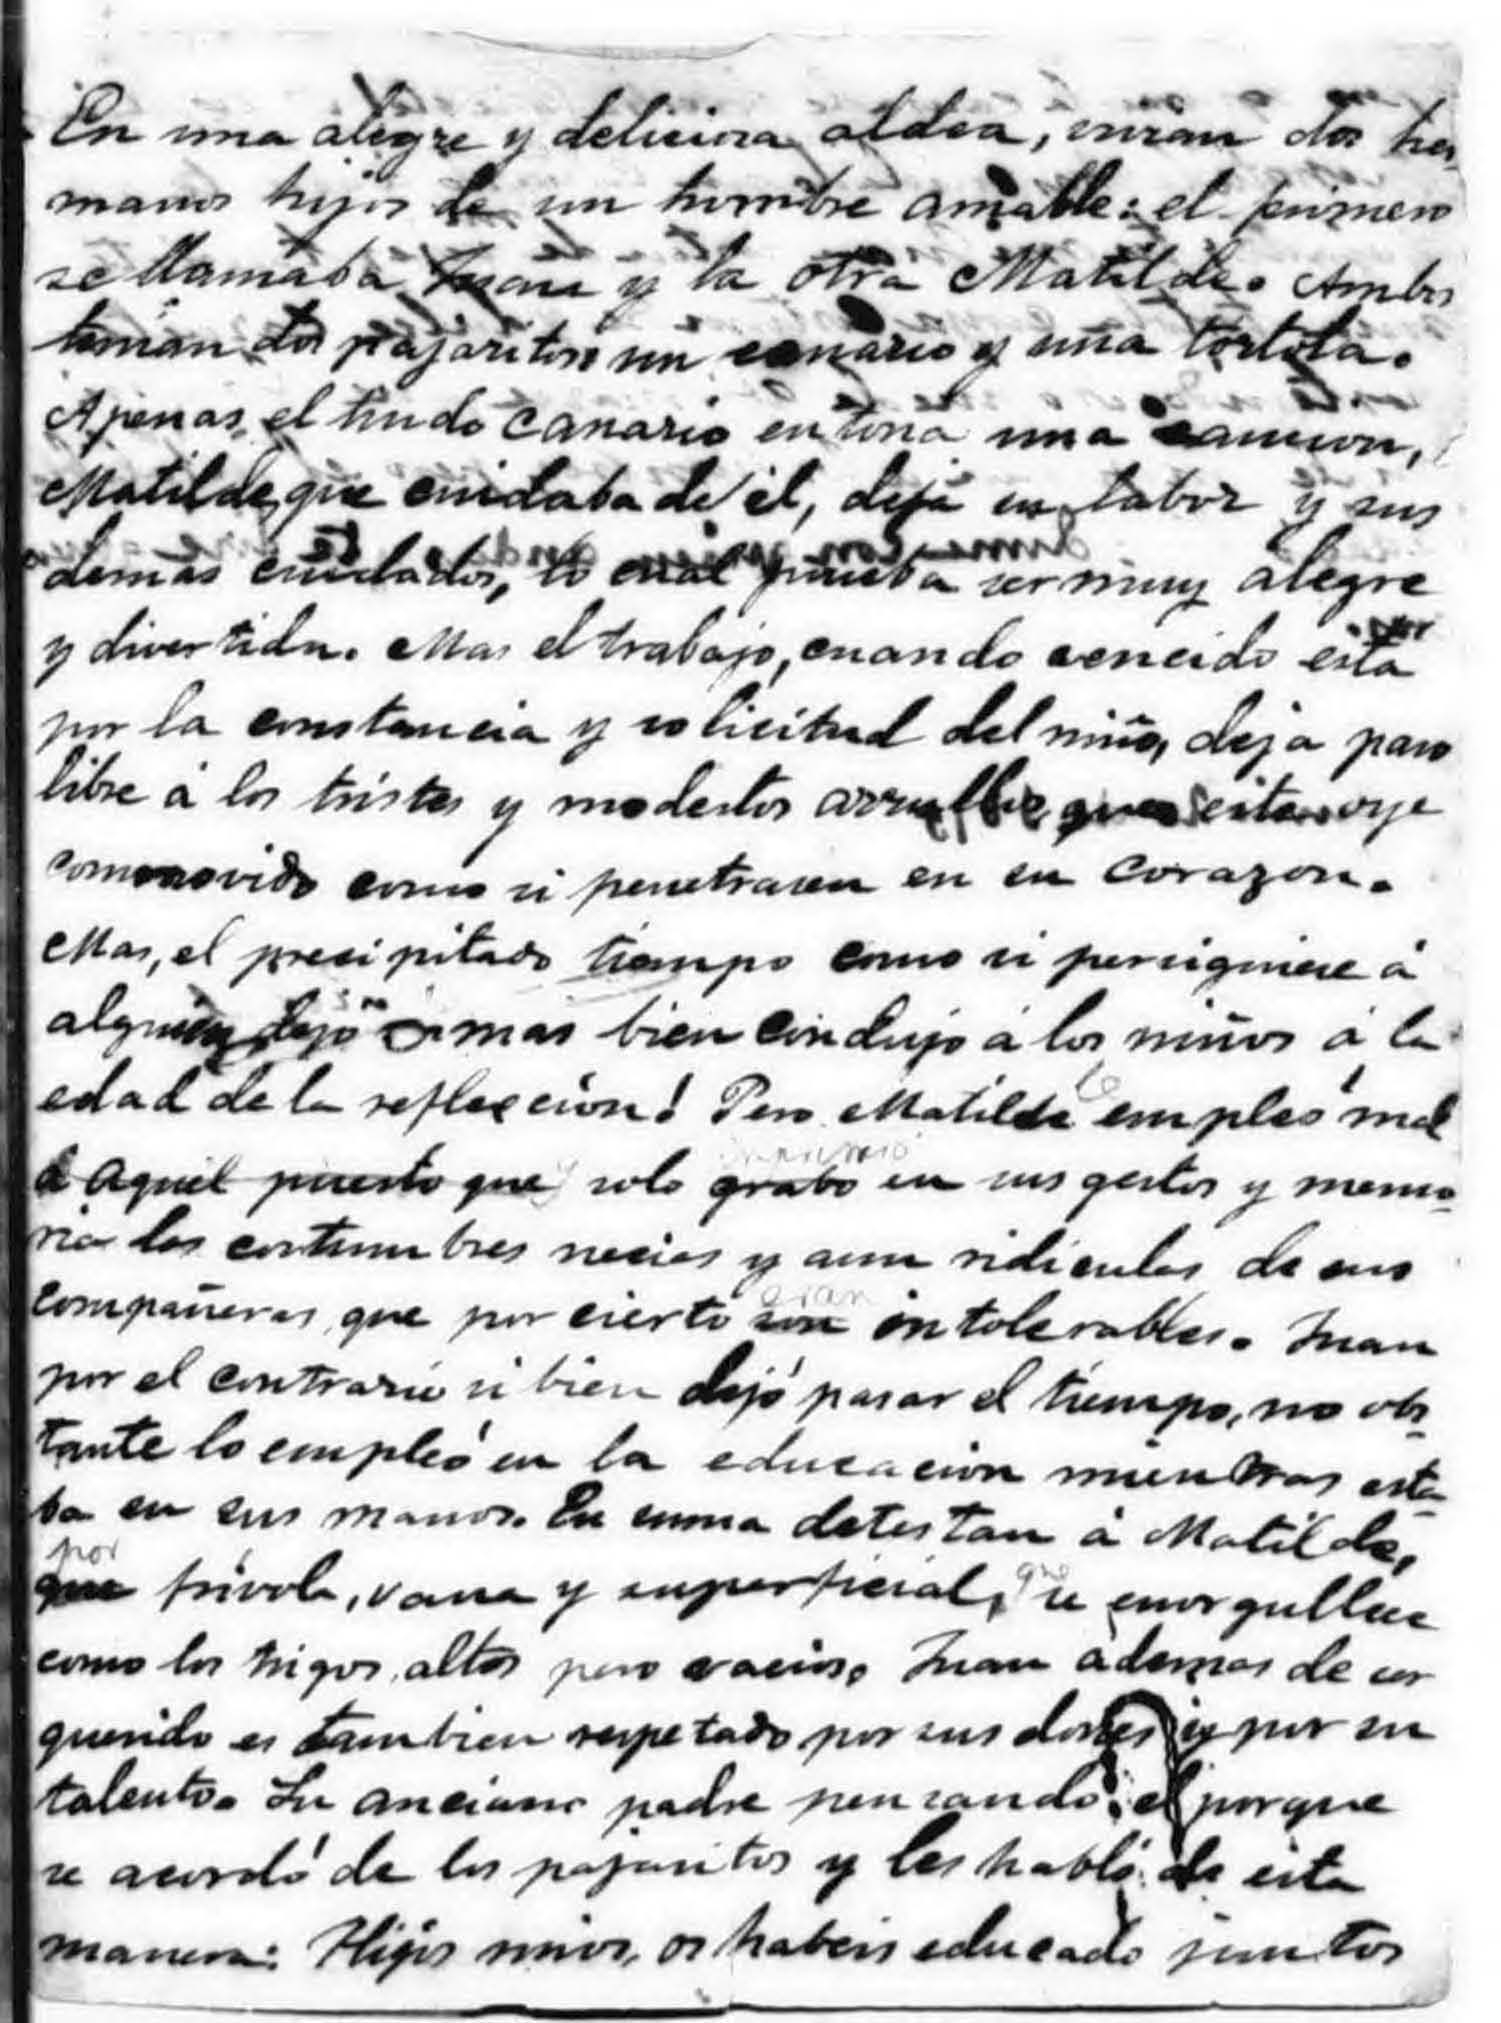 En una alegre y deliciosa aldea, vivian dos her-
manos hijos de un hombre amable: el primero
se llamaba Juan y la otra Matilde. Ambos
tenian dos pajaritos: un canario y una tortola.
Apenas el lindo canario entona una cancion,
Matilde, que cuidaba de él, deja su labor y sus
demas cuidados, lo cual prueba ser muy alegre
y divertida. Mas el trabajo, cuando vencido está
por la constancia y solicitud del niño, deja paso
libre á los tristes y modestos arrullos que este oye
conmovido como si penetrasen en su corazon.
Mas, el precipitado tiempo como si persiguiese á
alguien dejó mas bien condujo á los niños á la
edad de la refleccion! Pero Matilde le empleó mal
á aquel puesto que y solo grabó en sus gestos y memo-
ria las costumbres necias y aun ridiculas de sus
compañeras que por cierto son eran intolerables. Juan
por el contrario si bien dejó pasar el tiempo, no obs-
tante lo empleó en la educacion mientras esta-
ba en sus manos. En suma detestan á Matilde,
que por frívola, vana y superficial, que se enorgullece
como los trigos altos pero vacios. Juan ademas de ser
querido es tambien respetado por sus dones y por su
talento. Su anciano padre pensando el porque
se acordó de los pajaritos y les habló de esta
manera: Hijos mios, os habeis educado juntos